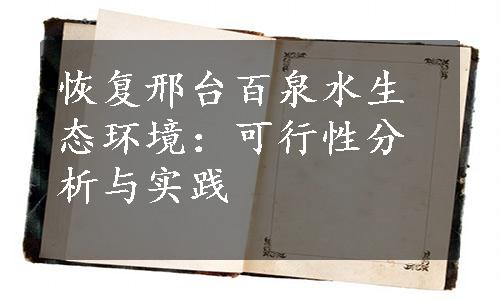 恢复邢台百泉水生
态环境：可行性分
析与实践